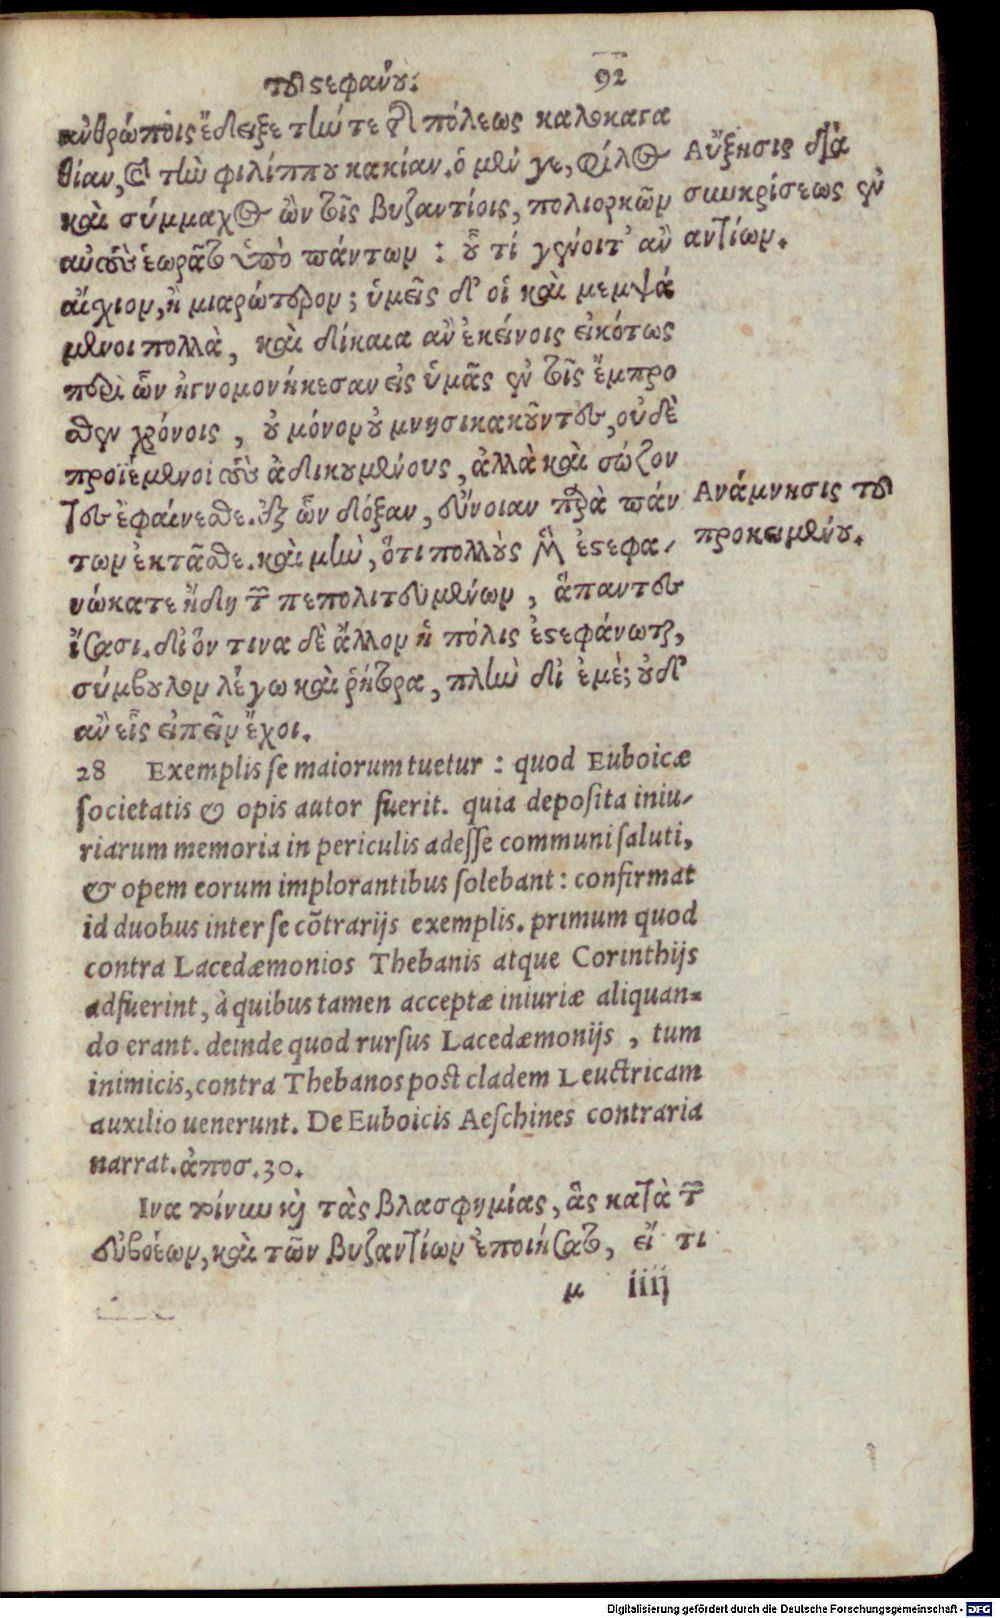 τοῦ στεφάνου. 92
ἀνθρώποις ἔδειξε τήν τε τῆς πόλεως καλοκαγα
θίαν, καὶ τὴν φιλίππου κακίαν. ὁ μέν γε, φίλος
καὶ σύμμαχος ὢν τοῖς βυζαντίοις, πολιορκῶν
αὐτοὺς ἑωρᾶτο ὑπὸ πάντων : οὗ τί γένοιτ' ἂν
αἴσχιον, ἢ μιαρώτερον; ὑμεῖς δ' οἱ καὶ μεμψά
μενοι πολλὰ, καὶ δίκαια ἂν ἐκείνοις εἰκότως
περὶ ὧν ἠγνομονήκεσαν εἰς ὑμᾶς ἐν τοῖς ἔμπρο
σθεν χρόνοις, οὐ μόνον οὐ μνησικακοῦντες, οὐδὲ
προϊέμενοι τοὺς ἀδικουμένους, ἀλλὰ καὶ σώζον
τες ἐφαίνεσθε. ἐξ ὧν δόξαν, εὔνοιαν παρὰ πάν
των ἐκτᾶσθε. καὶ μὴν, ὅτι πολλοὺς μὲν ἐστεφα-
νώκατε ἤδη τῶν πεπολιτευμένων, ἅπαντες
ἴσασι. δι' ὅν τινα δὲ ἄλλον ἡ πόλις ἐστεφάνωται,
σύμβουλον λέγω καὶ ῥήτορα, πλὴν δι' ἐμὲ; οὐδ'
ἂν εἷς εἰπεῖν ἔχοι.
Αὔξησις διὰ
συγκρίσεως ἐν
αντίων.
Ανάμνησις τοῦ
προκειμένου.
28 Exemplis se maiorum tuetur : quod Euboicæ
societatis & opis autor fuerit. quia deposita iniu-
riarum memoria in periculis adesse communi saluti,
& opem eorum implorantibus solebant : confirmat
id duobus inter se cõtrarijs exemplis. primum quod
contra Lacedæmonios Thebanis atque Corinthijs
adfuerint, à quibus tamen acceptæ iniuriæ aliquan=
do erant. deinde quod rursus Lacedæmonijs , tum
inimicis, contra Thebanos post cladem Leuctricam
auxilio uenerunt. De Euboicis Aeschines contraria
narrat. ἀποσ. 30.
Ινα τοίνυν καὶ τὰς βλασφημίας, ἃς κατὰ τῶν
εὐβοέων, καὶ τῶν βυζαντίων ἐποιήσατο, εἴ τι
μ iiij
Digitalisierung gefördert durch die Deutsche Forschungsgemeinschaft - DFG